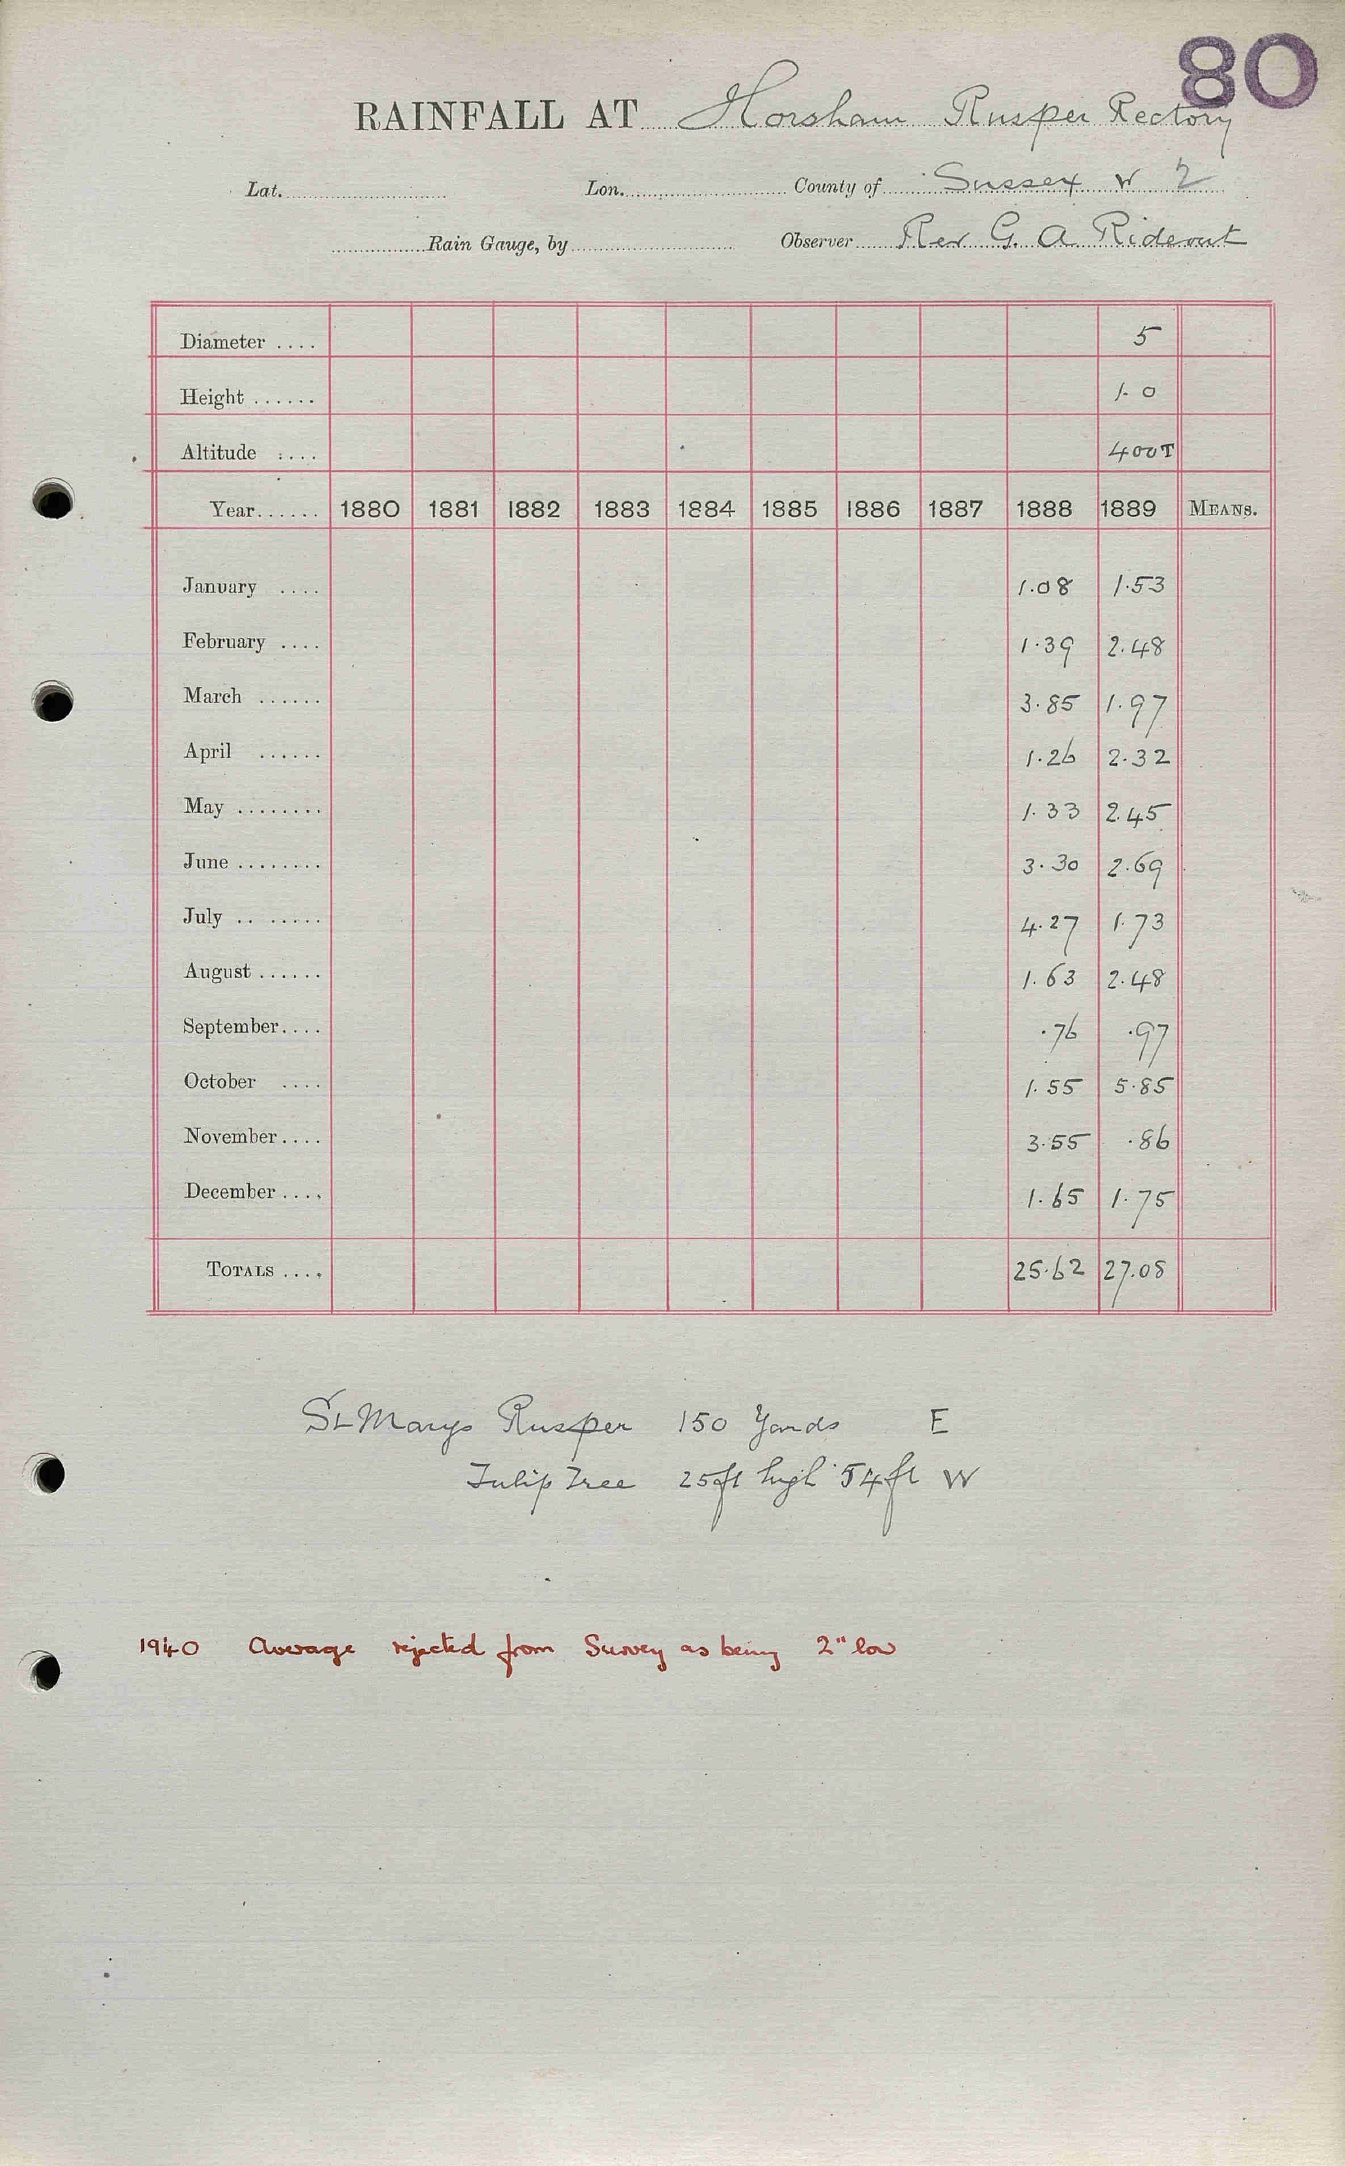 80
RAINFALL AT Horsham Rusper Rectory
Lat. Lon. County of Sussex W 2
Rain Gauge, by Observer Rev G. A Rideout
Diameter .... 5
Height ...... 1.0
Altitude .... 400T
Year...... 1880 1881 1882 1883 1884 1885 1886 1887 1888 1889 MEANS.
January .... 1.08 1.53
February .... 1.39 2.48
March ...... 3.85 1.97
April ...... 1.26 2.32
May ........ 1.33 2.45
June ........ 3.30 2.69
July .. ..... 4.27 1.73
August ...... 1.63 2.48
September.... .76 .97
October .... 1.55 5.85
November.... 3.55 .86
December .... 1.65 1.75
TOTALS .... 25.62 27.08
St Marys Rusper 150 Yards E
Tulip Tree 25ft high 54ft W
1940 Average rejected from Survey as being 2" low